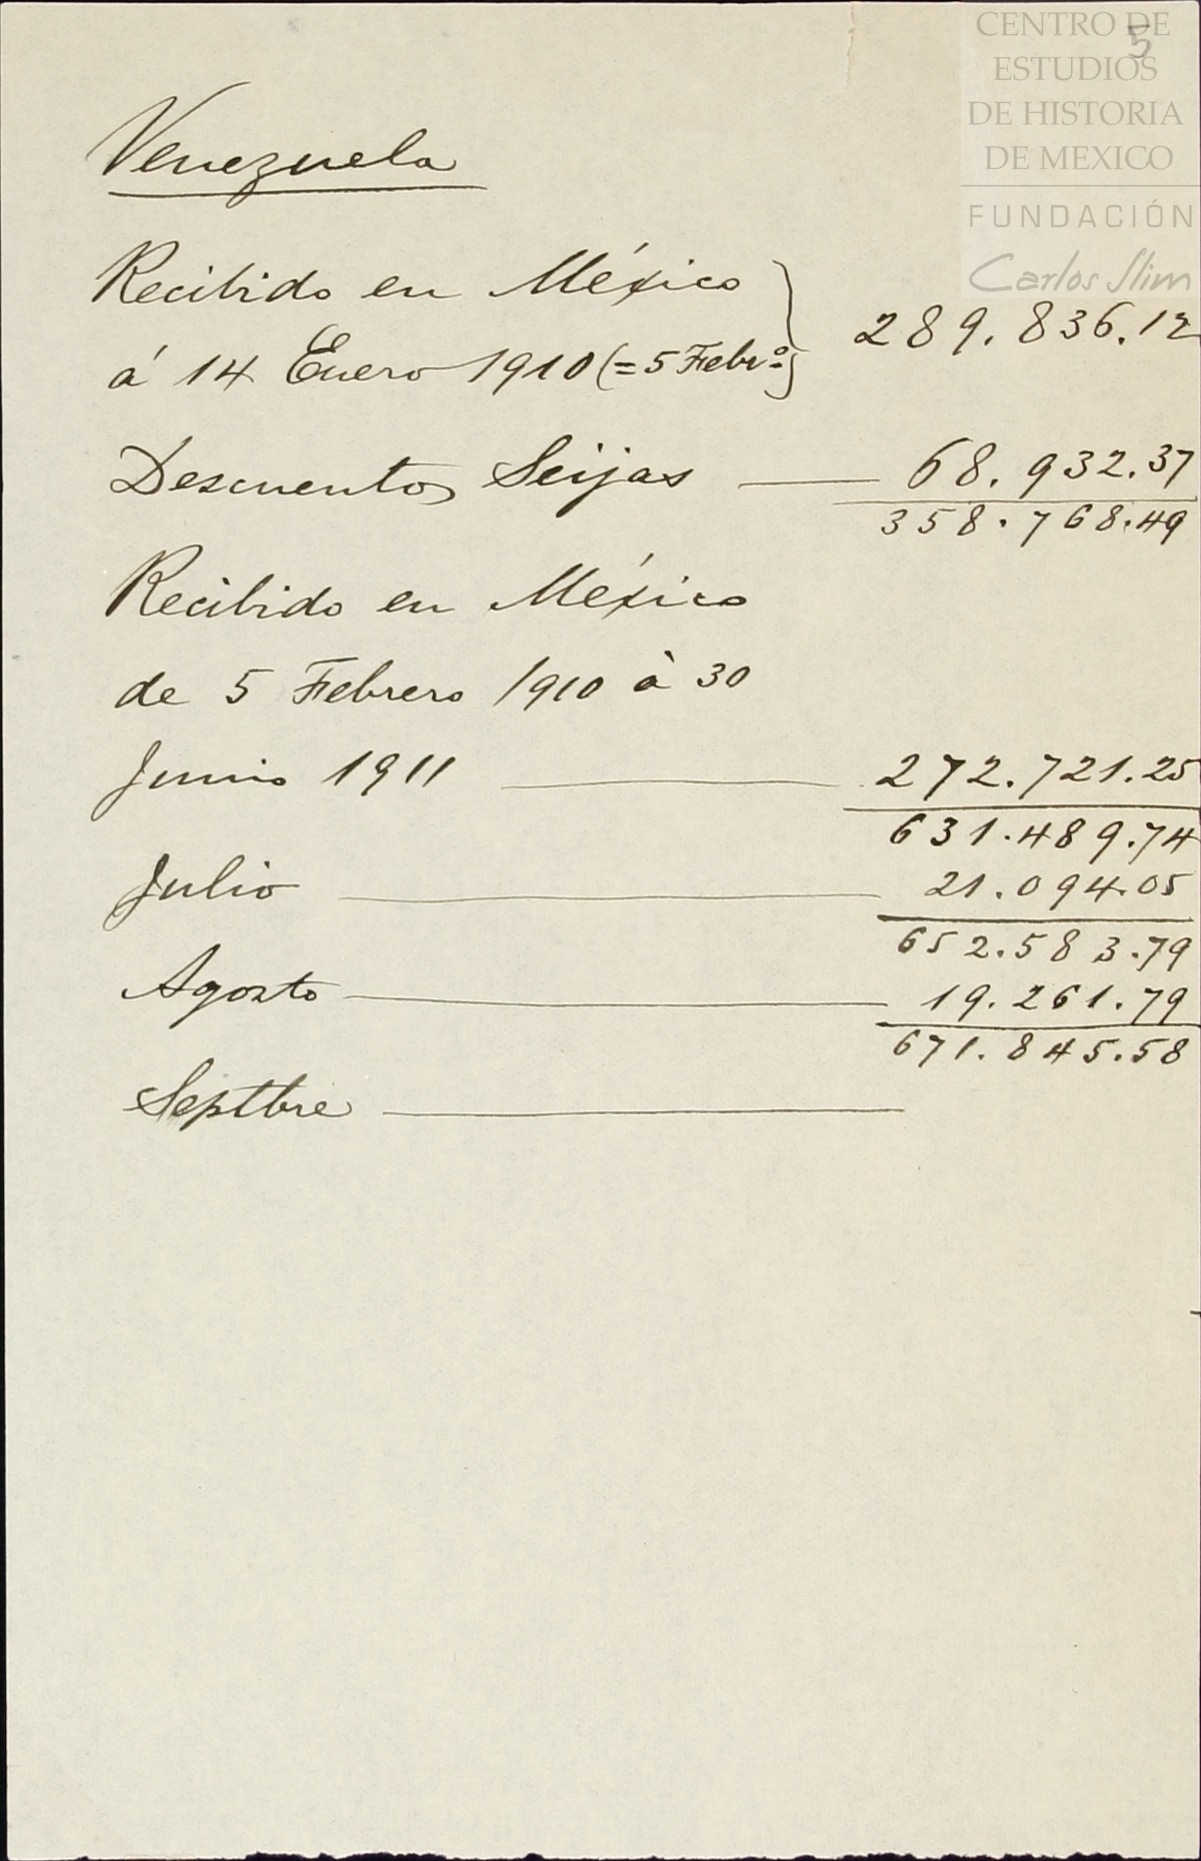 CENTRO DE
ESTUDIOS
DE HISTORIA
DE MEXICO
FUNDACIÓN
Carlos Slim
5
Venezuela
Recibido en México
á 14 Enero 1910 (=5 Febrº) 289.836.12
Descuentos Seijas 68.932.37
358.768.49
Recibido en México
de 5 Febrero 1910 à 30
Junio 1911 272.721.25
631.489.74
Julio 21.094.05
652.583.79
Agosto 19.261.79
671.845.58
Septbre